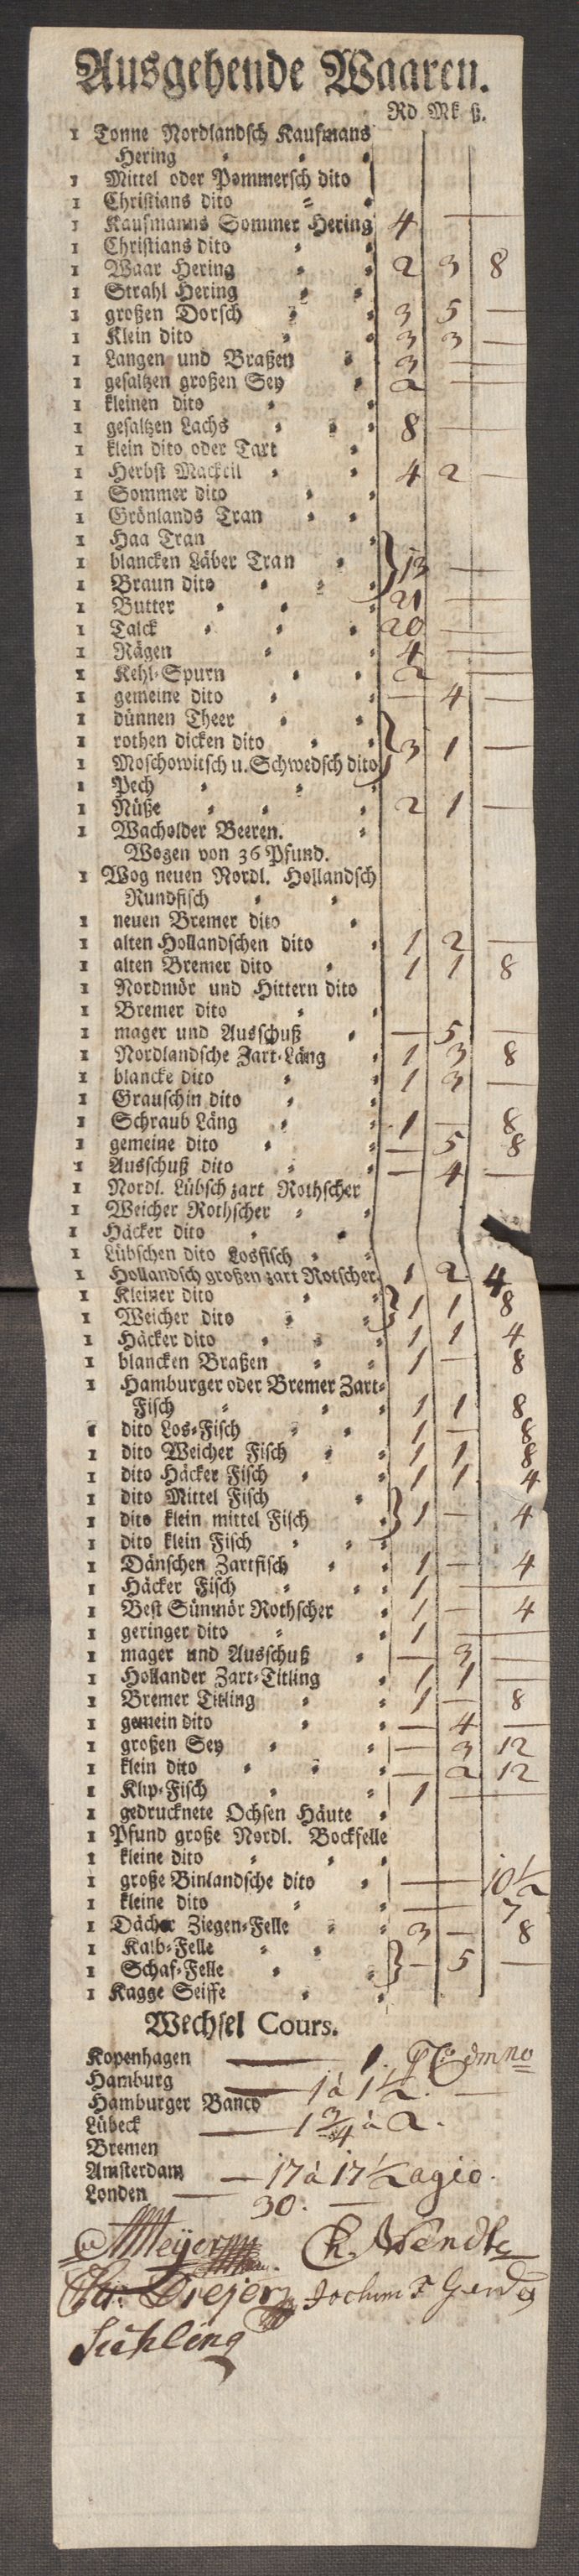 Ausgehende Waaren.
Rd Mk ß.
1 Tonne Nordlandsch Kaufmans
Hering
1 Mittel oder Pommersch dito
1 Christians dito
1 Kaufmanns Sommer Hering 4 —
1 Christians dito
1 Waar Hering 2 3 8
1 Strahl Hering
1 großen Dorsch 3 5 —
1 Klein dito 3 3 —
1 Langen und Braßen 3 —
1 gesaltzen großen Sey 2 —
1 kleinen dito
1 gesaltzen Lachs 8 —
1 klein dito oder Tart
1 Herbst Mackril 4 2 —
1 Sommer dito
1 Grönlands Tran
1 Haa Tran
1 blancken Läber Tran } 13 —
1 Braun dito
1 Butter 21 —
1 Talck 20 —
1 Rägen 4 —
1 Kehl-Spurn 2 —
1 gemeine dito — 4 —
1 dünnen Theer
1 rothen dicken dito } 3 1 —
1 Moschowitsch u. Schwedsch dito
1 Pech
1 Nüße 2 1 —
1 Wacholder Beeren.
Wogen von 36 Pfund.
1 Wog neuen Nordl. Hollandsch
Rundfisch
1 neuen Bremer dito
1 alten Hollandschen dito 1 2 —
1 alten Bremer dito 1 1 8
1 Nordmör und Hittern dito
1 Bremer dito
1 mager und Ausschuß — 5 —
1 Nordlandsche Zart-Läng 1 3 8
1 blancke dito 1 3 —
1 Grauschin dito
1 Schraub Läng 1 — 8
1 gemeine dito — 5 8
1 Ausschuß dito — 4 —
1 Nordl. Lübsch zart Rothscher
1 Weicher Rothscher
1 Häcker dito
1 Lübschen dito Losfisch
1 Hollandsch großen zart Rotscher 1 2 4
1 Kleiner dito } 1 1 8
1 Weicher dito
1 Häcker dito 1 1 4
1 blancken Braßen 1 — 8
1 Hamburger oder Bremer Zart-
Fisch 1 1 8
1 dito Los-Fisch 1 — 8
1 dito Weicher Fisch 1 1 8
1 dito Häcker Fisch 1 1 4
1 dito Mittel Fisch
1 dito klein mittel Fisch } 1 — 4
1 dito klein Fisch
1 Dänschen Zartfisch 1 — 4
1 Häcker Fisch 1 —
1 Best Sünmör Rothscher 1 — 4
1 geringer dito 1 —
1 mager und Ausschuß — 3 —
1 Hollander Zart-Titling 1 1 —
1 Bremer Titling 1 — 8
1 gemein dito — 4 —
1 großen Sey — 3 12
1 klein dito — 2 12
1 Klip-Fisch 1 —
1 gedrucknete Ochsen Häute
1 Pfund große Nordl. Bockfelle
1 kleine dito
1 große Binlandsche dito — 10 1/2
1 kleine dito — 7
1 Dächer Ziegen-Felle 3 — 8
1 Kalb-Felle } — 5 —
1 Schaf-Felle
1 Kagge Seiffe
Wechsel Cours.
Kopenhagen — 1.
Hamburg
Hamburger Banco — 1 à 1 1/2. —
Lübeck — 1 3/4 à 2.
Bremen
Amsterdam — 17 à 17 1/2 agio.
Londen — 30. —
Meijer
Ch. Wendt
Drejer Jochim F Gerdes
Sühling